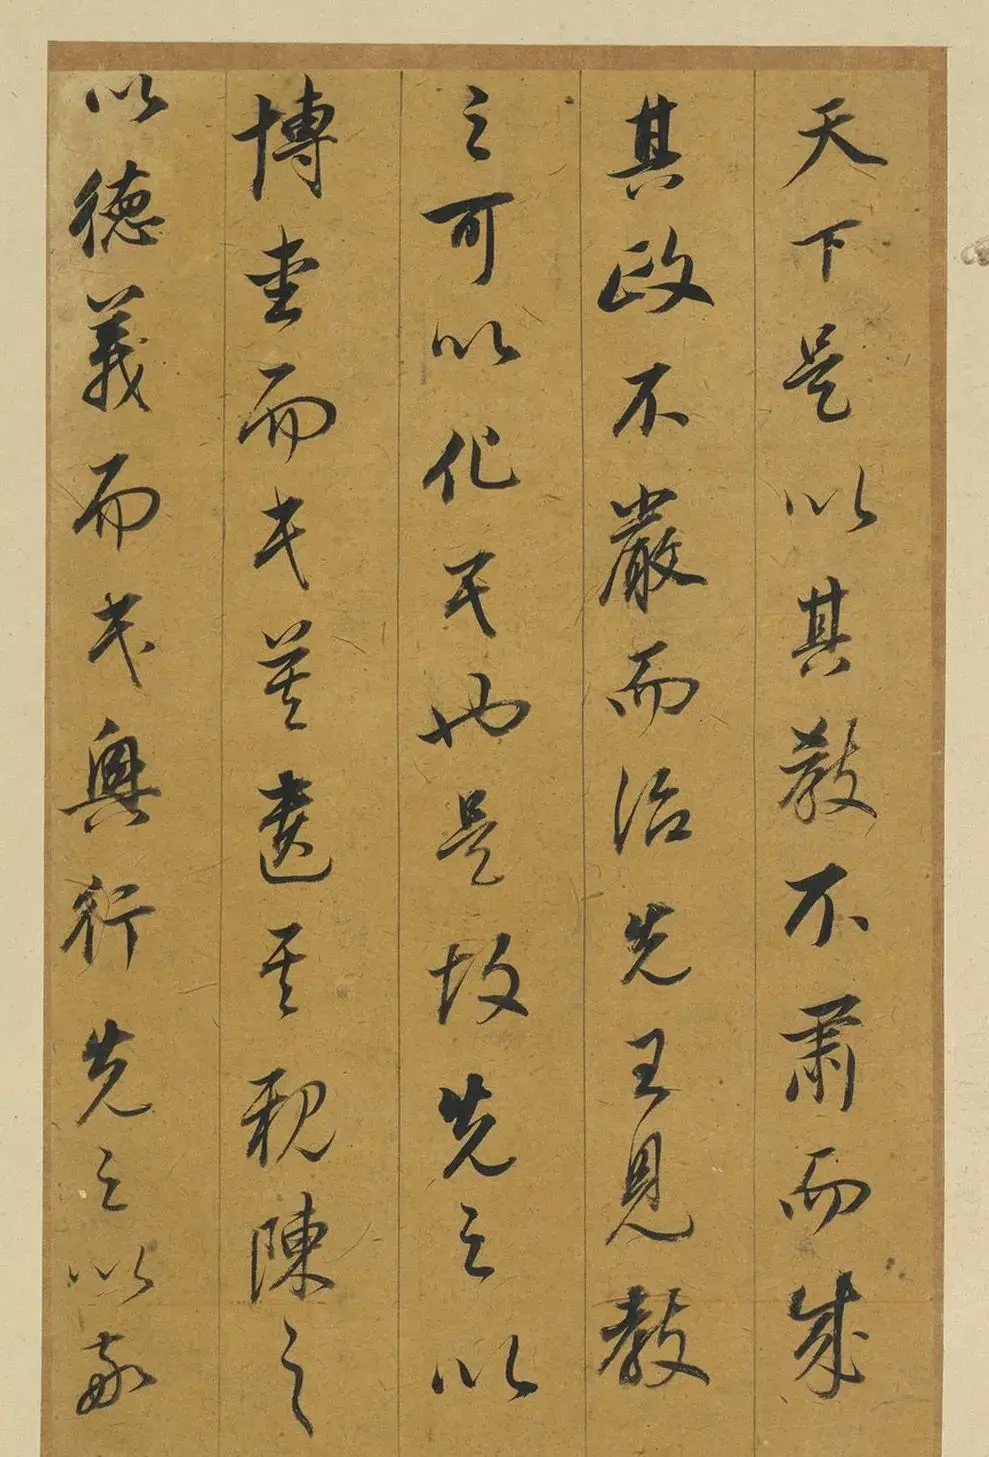 天下是以其教不肅而成
其政不嚴而治先王見教
之可以化民也是故先之以
博愛而民莫遺其親陳之
以德義而民興行先之以敬